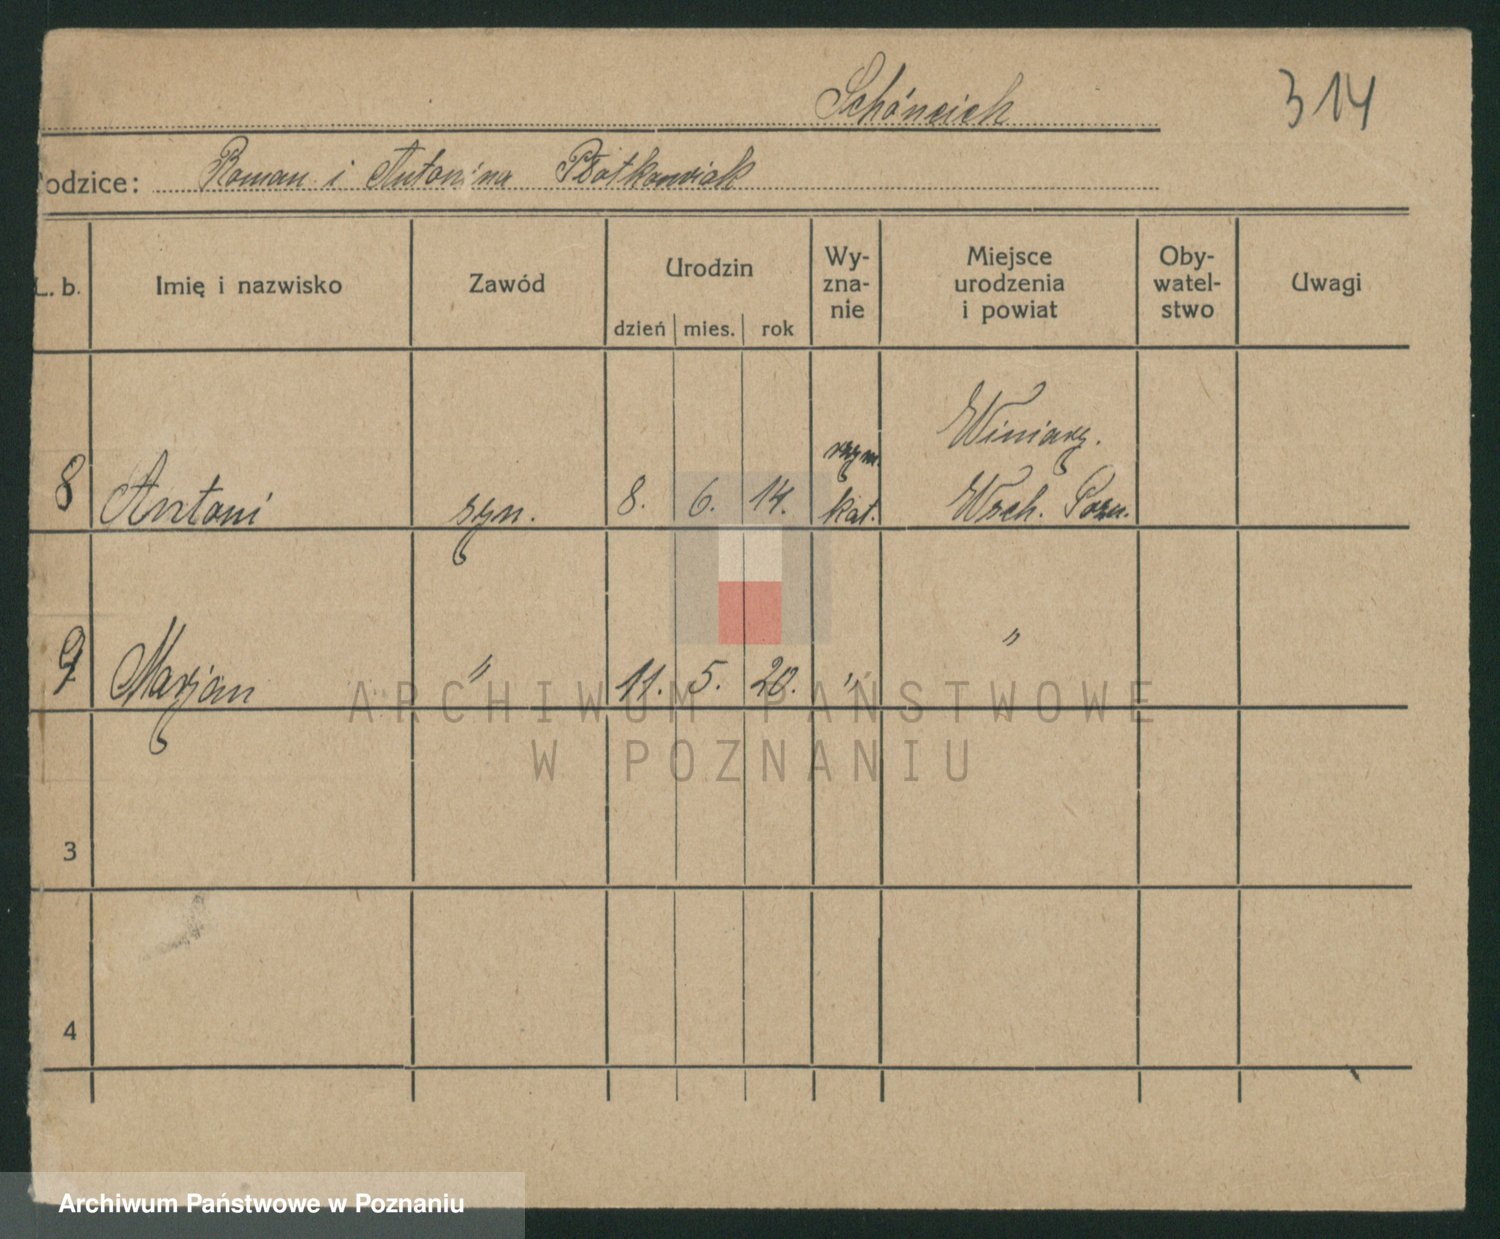 Schóneich 314
odzice: Roman i Antonina Płotkowiak
L. b. Imię i nazwisko Zawód Urodzin dzień mies. rok Wy-zna-nie Miejsce urodzenia i powiat Oby-watel-stwo Uwagi
Winiary.
rzym.
8 Antoni syn. 8. 6. 14. kat. Wsch. Pozn.
9 Marjan " 11. 5. 20. " "
ARCHIWUM PAŃSTWOWE
W POZNANIU
3
4
Archiwum Państwowe w Poznaniu